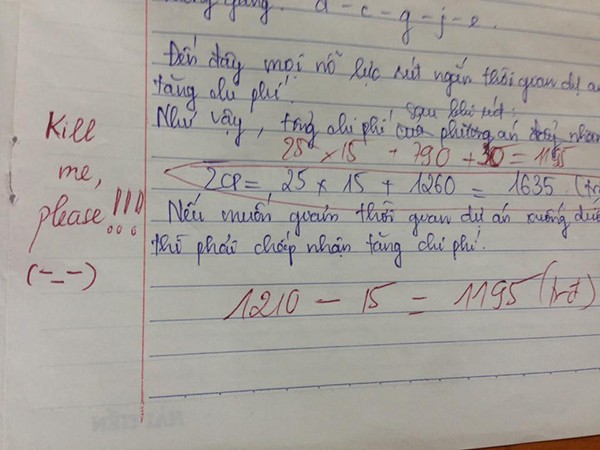 d - c - g - j - e.
Đến đây mọi nỗ lực rút ngắn thời gian dự án
tăng chi phí.
sau khi rút
Như vậy, tổng chi phí của phương án đẩy nhanh
25 × 15 + 790 + 30 = 1195
ΣCP = 25 × 15 + 1260 = 1635
Nếu muốn giảm thời gian dự án xuống
thì phải chấp nhận tăng chi phí.
1210 - 15 = 1195 (trđ)
Kill
me,
please!!!
(-_-)